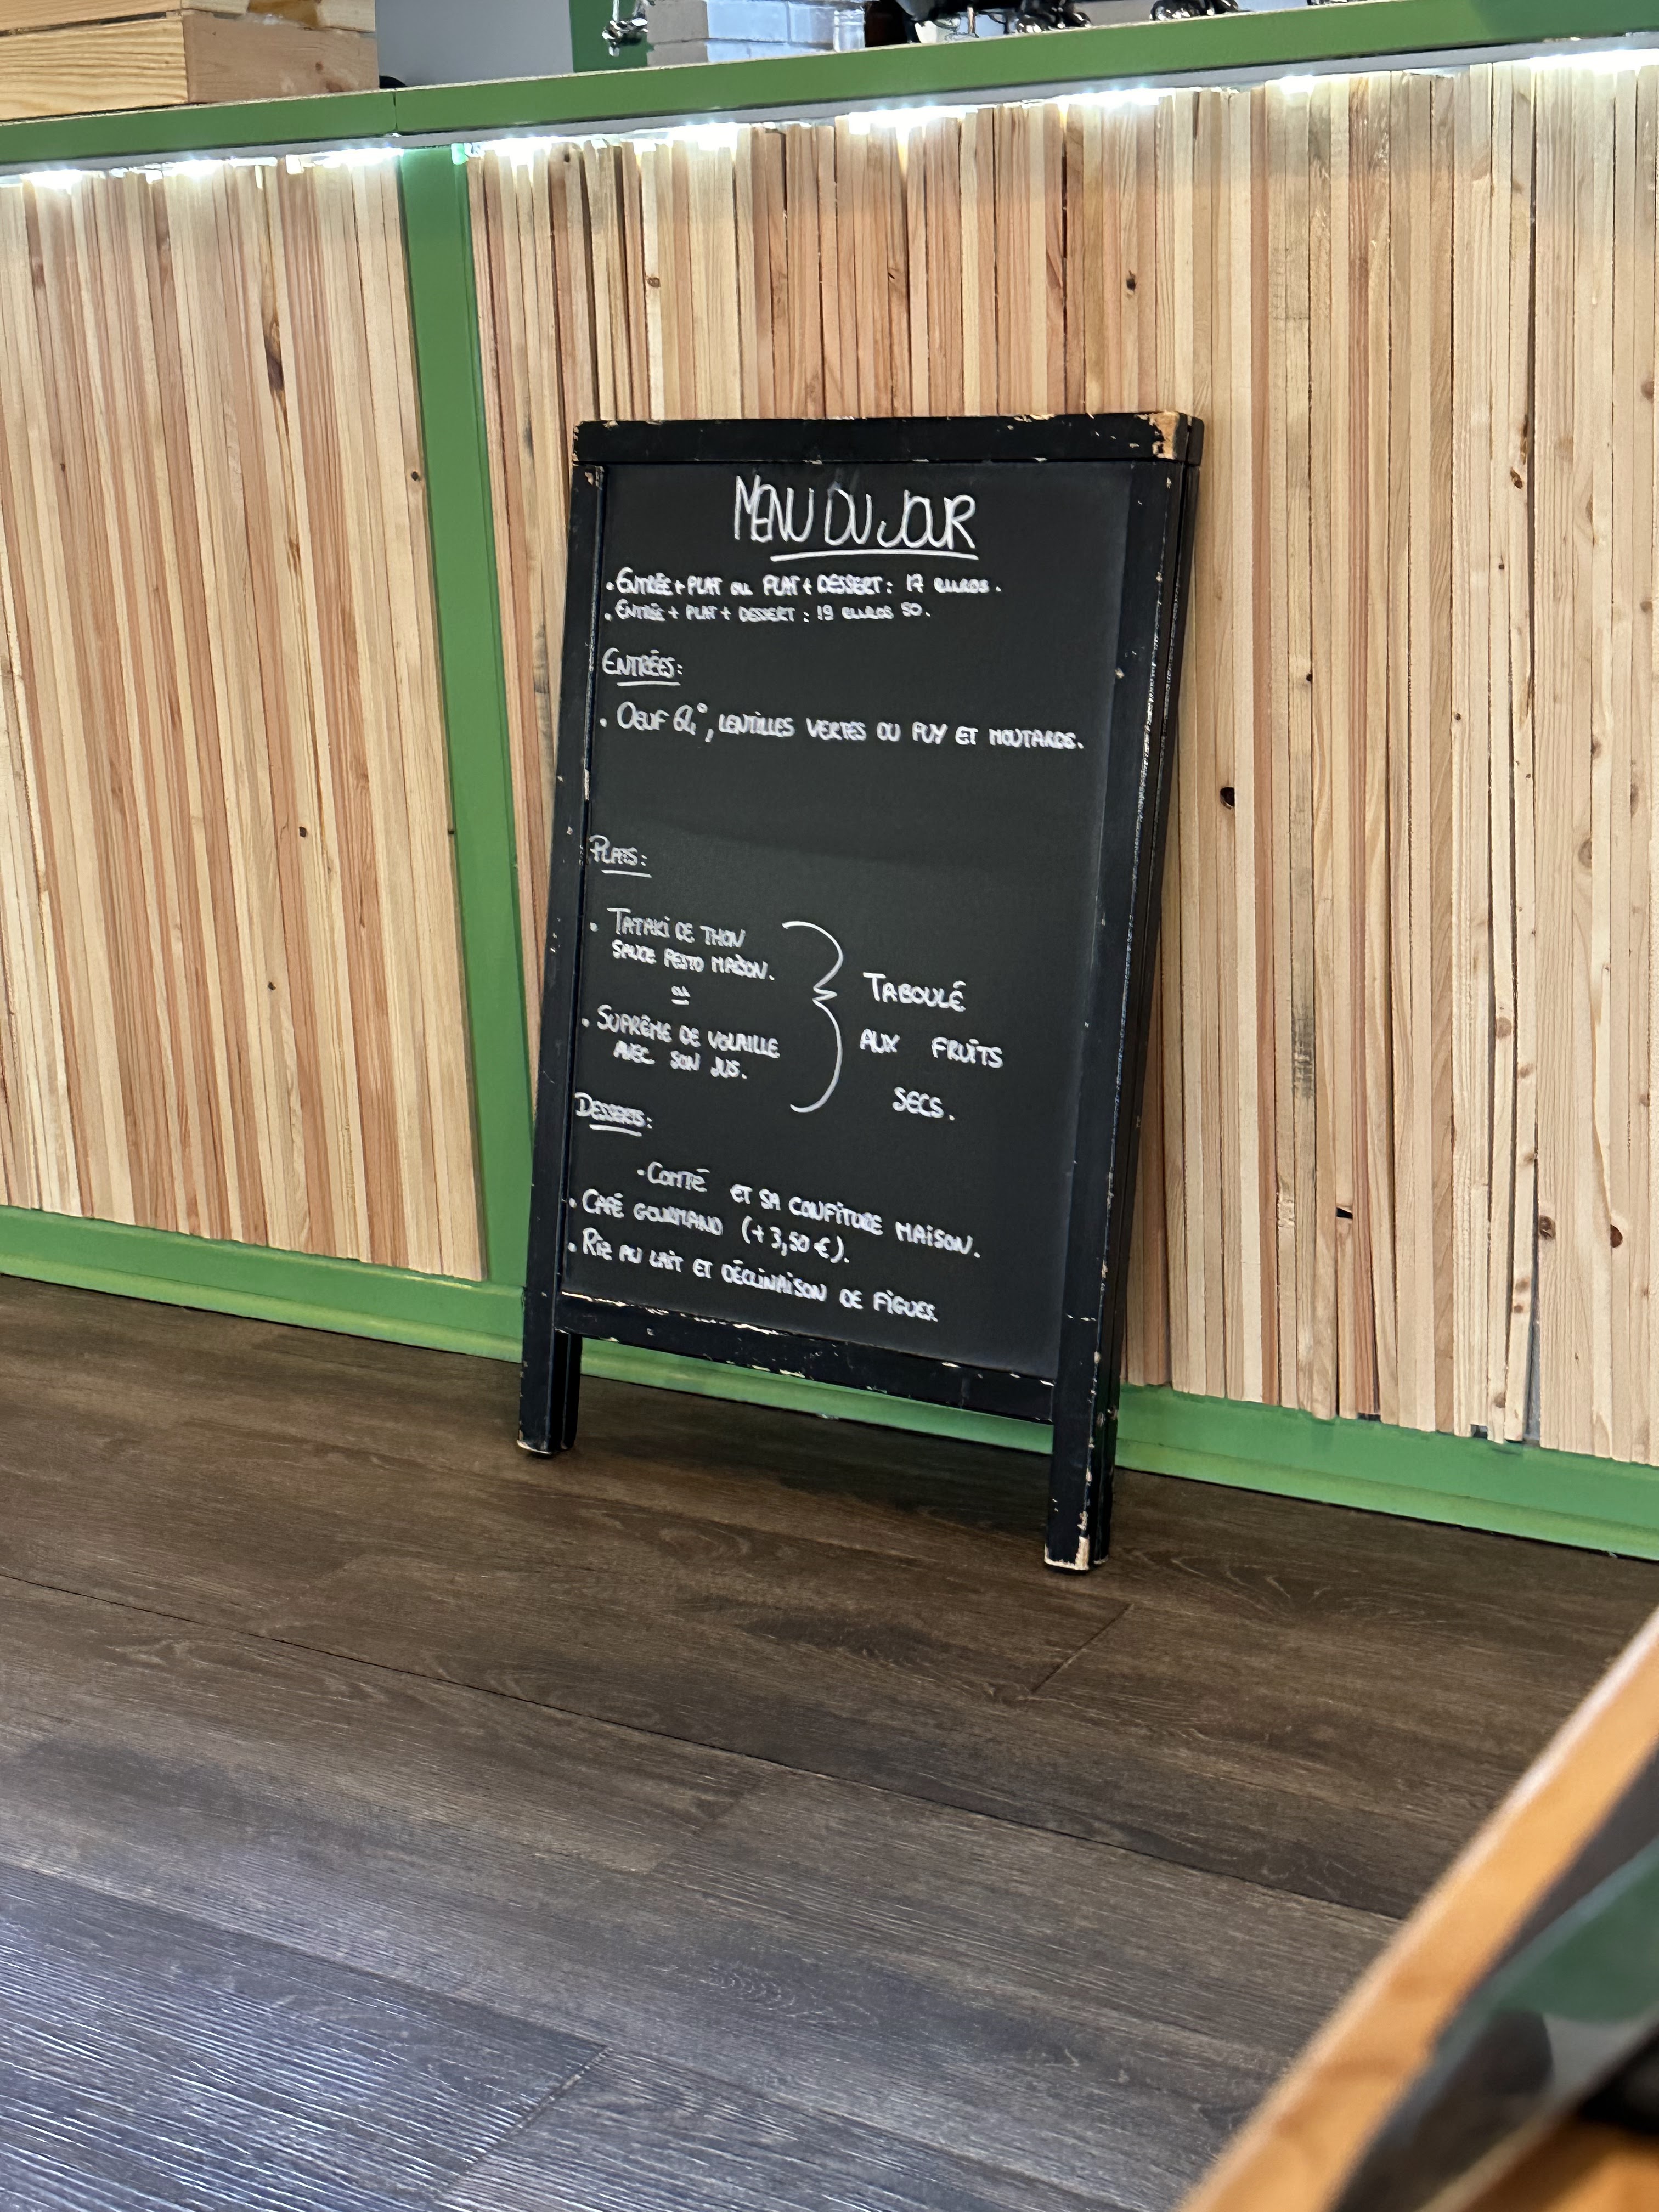 MENU DU JOUR
• ENTRÉE + PLAT ou PLAT + DESSERT : 17 euros.
• ENTRÉE + PLAT + DESSERT : 19 euros 50.
ENTRÉES :
• OEUF 64°, LENTILLES VERTES DU PUY ET MOUTARDE.
PLATS :
• TATAKI DE THON
SAUCE PESTO MAISON.
ou
• SUPRÊME DE VOLAILLE
AVEC SON JUS.
TABOULÉ
AUX FRUITS
SECS.
DESSERTS :
• COMTÉ ET SA CONFITURE MAISON.
• CAFÉ GOURMAND (+ 3,50 €).
• RIZ AU LAIT ET DÉCLINAISON DE FIGUES